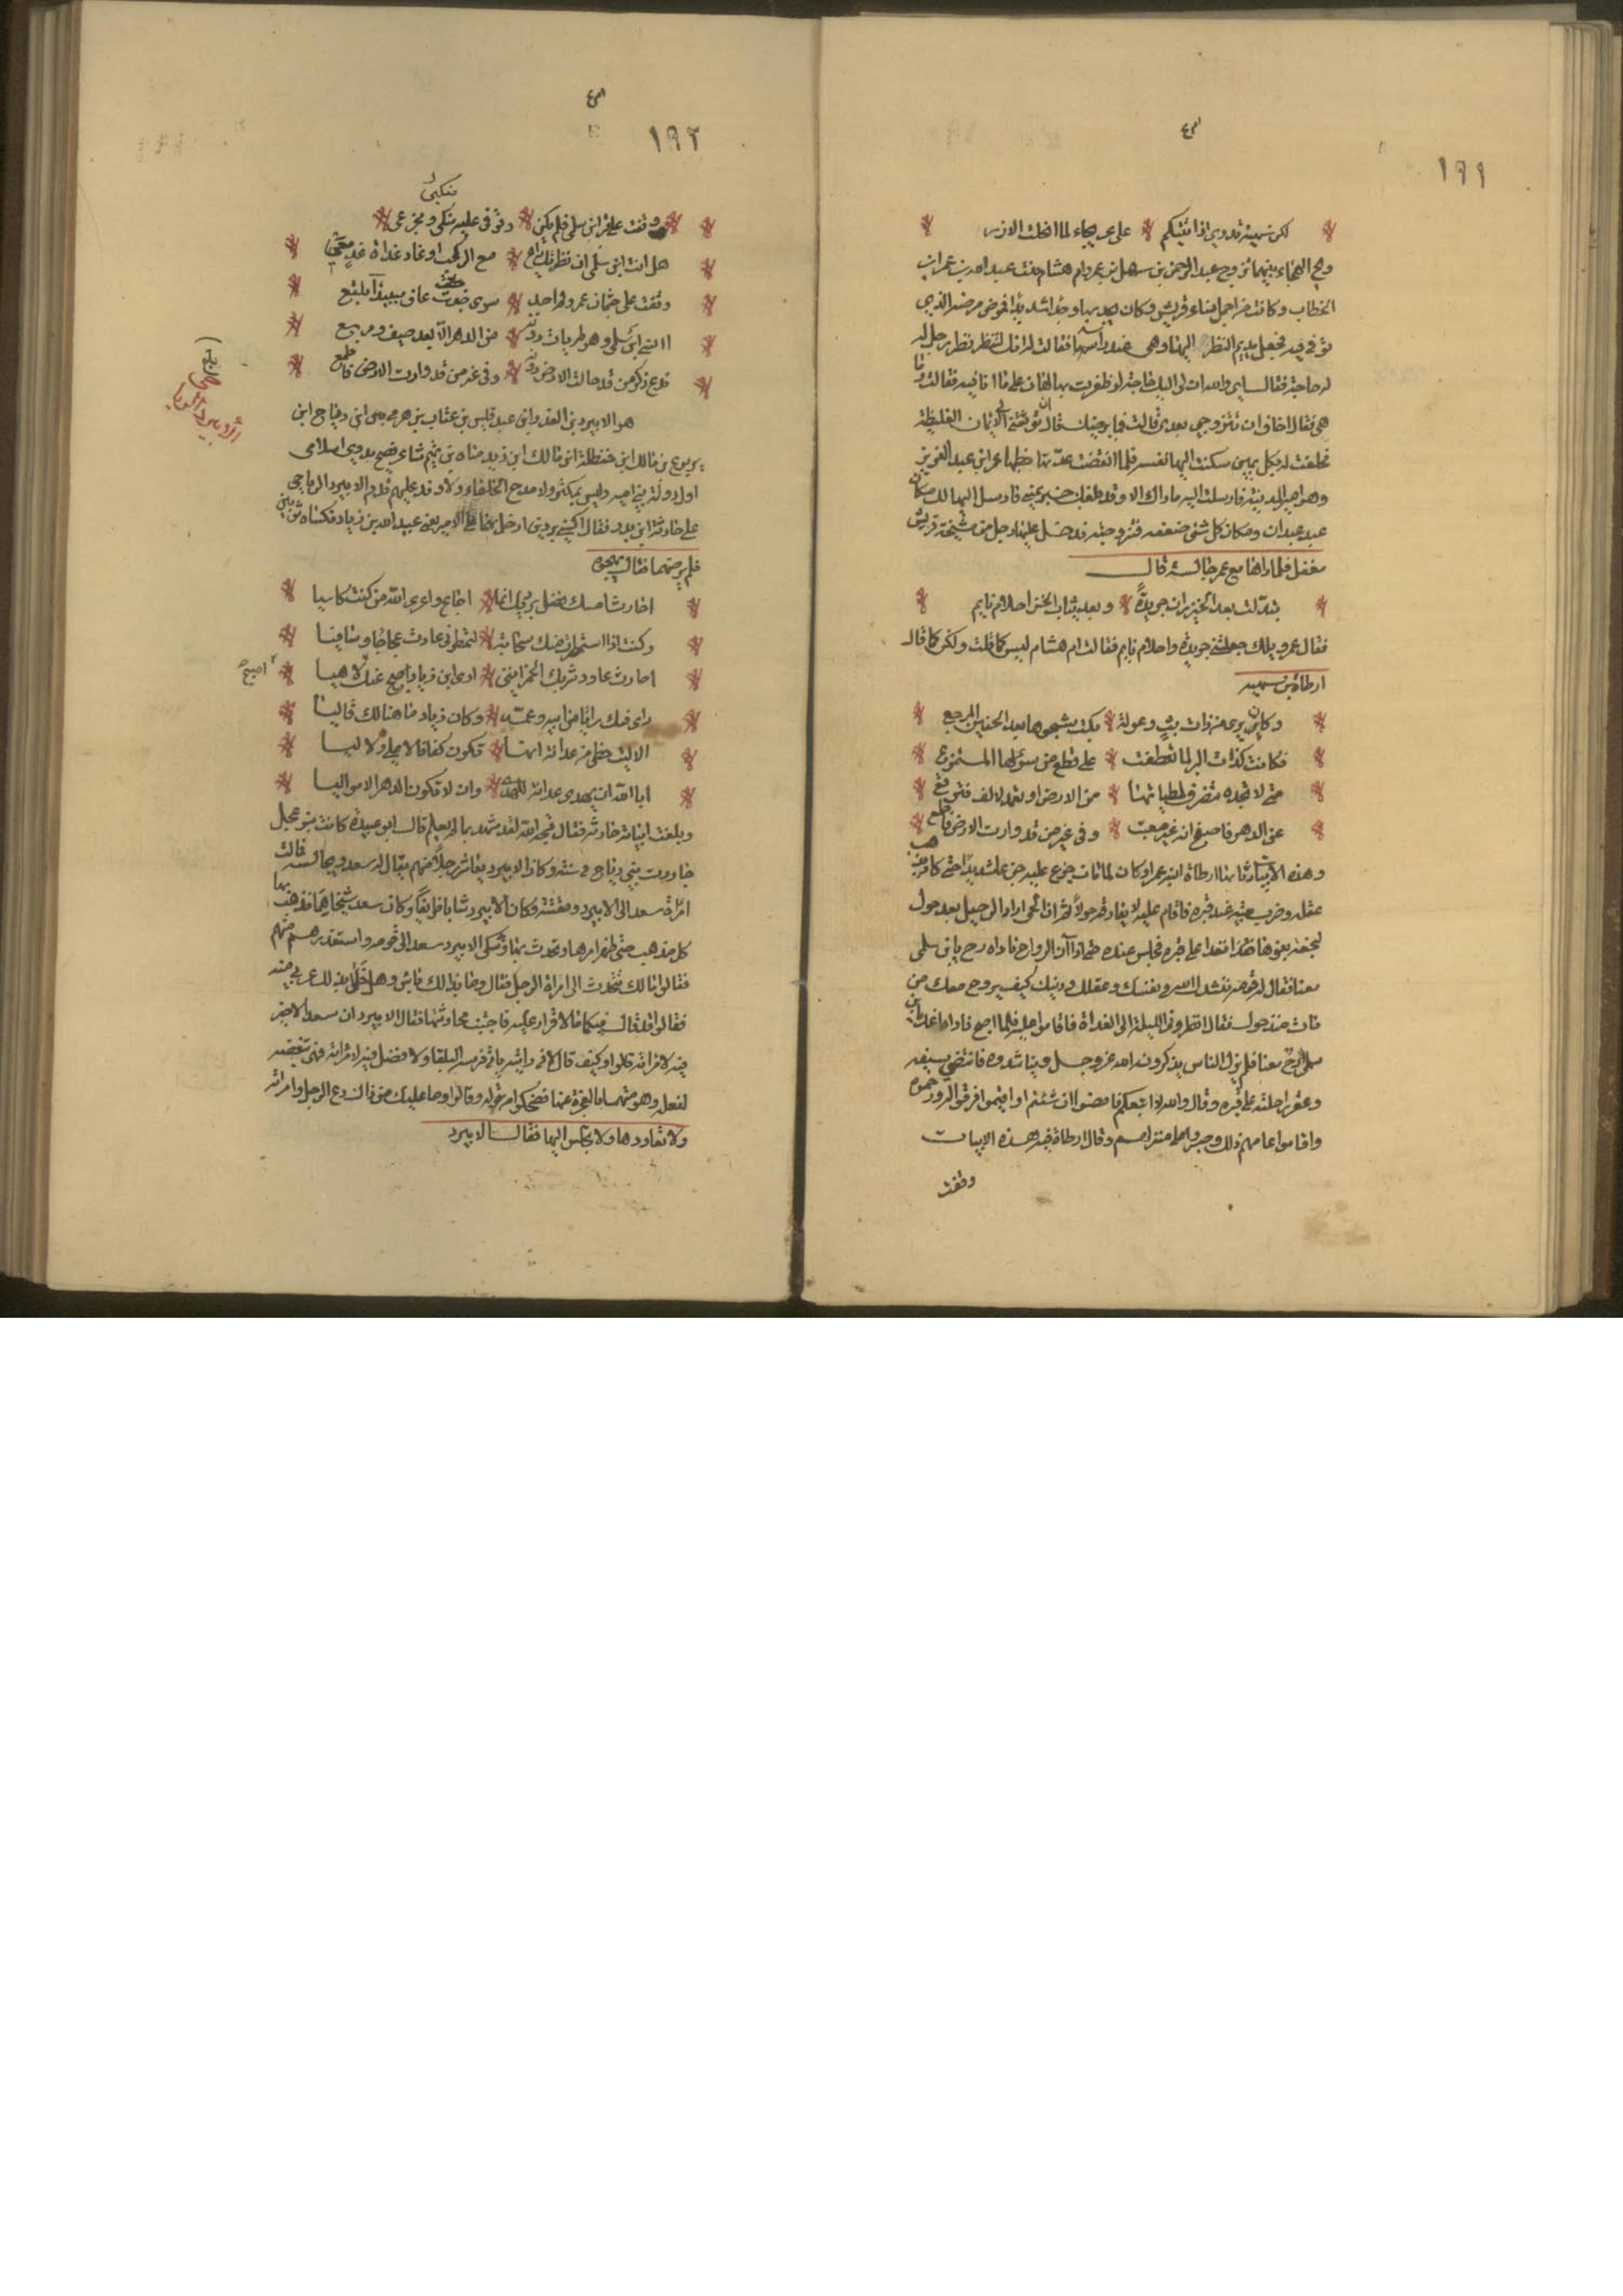 ١٩١
لكن سمية تدري اذا ئتيكم على عريجاء لما انحلت الازر
ولج الهجاء بينهما تزوج عبد الرحمن بن سهل ابن عمرو ام هشام بنت عبد الله بن عمر ابن
الخطاب وكانت من اجمل نساء قريش وكان يجد بها وجدا شديدا فمرض مرضه الذي
توفي فيه فجعل يديم النظر اليها وهي عند رأسه فقالت له انك لتنظر نظر رجل له
له حاجة فقال اي والله ان لي اليك حاجة لو ظفرت بها لهان علي ما انا فيه فقالت وما
هي فقال اخاف ان تتزوجي بعدي قالت فما يرضيك قال ان توثقني الايمان الغليظة
فحلفت له بكل يمين سكنت اليها نفسه فلما انقضت عدتها خطبها عمر ابن عبد العزيز
وهو امير المدينة فارسلت اليه ما اراك الا وقد بلغك خبر يميني فارسل اليها لك مكان
عبد عبدان ومكان كل شئ ضعفه فتزوجته فدخل عليها رجل من مشيخة قريش
مغفل فلما راها مع عمر جالسة قال
تبدلت بعد الخيزران جريدة وبعد ثياب الخز احلام نايم
فقال عمر ويلك جعلتني جريدة واحلام نايم فقالت ام هشام ليس كما قلت ولكن كما قال
ارطاة بن سهية
وكائن يرى من ذات بث وعولة بكت شجوها بعد الحنين المرجع
فكانت كذات البو لما تعطفت على قطع من شلوها المتمزع
متى لا تجده تنصرف لطياتها من الارض او تعمد لالف فتربع
عن الدهر فاصفح انه غير معتب وفي غير من قد وارت الارض فاطمع
وهذه الابيات قالها ارطاة لابنه عمرا وكان لما مات جزع عليه جزعا شديدا حتى كاد يذهب
عقله وضرب بيته عند قبره فاقام عليه لا يفارقه حولا ثم ان الحي اراد الرحيل بعد حول
لنجعة بغوها فغدا على قبره فجلس عنده حتى اذا آن الرواح ناداه رح يابن سلمى
معنا فقال له قومه ننشدك الله في نفسك وعقلك ودينك كيف يروح معك من
مات منذ حول فقال انظروني الليلة الى الغداة فاقاموا عليه فلما اصبح ناداه اغد يابن
سلمى معنا فلم يزل الناس يذكرونه الله عز وجل ويناشدوه فانتضى سيفه
وعقر راحلته على قبره وقال والله لا اتبعكم فامضوا ان شئتم او اقيموا فرقوا له ورحموه
واقاموا عامهم ذلك وصبروا على منزلهم وقال ارطاة في هذه الابيات
وقفت
١٩٢
منكبى
وقفت على قبر ابن سلمى فلم يكن وقوفي عليه مبكى ومجزعى
هل انت ابن سلمى ان نظرتك رائح مع الركب او غاد غداة غد معي
وقفت على جثمان عمرو فلم اجد سوى جدث عاف ببيدآ بلقع
اانسى ابن سلمى وهو لم يات دونه من الدهر الا بعد صيف ومربع
فدع ذكر من قد حالت الارض دونه وفي غير من قد وارت الارض فاطمع
الأبيرد الرياحى
هو الابيرد بن المعذر ابن عبد قيس بن عتاب بن هرمى ابن رياح ابن
يربوع بن مالك ابن حنظلة ابن مالك ابن زيد مناه بن تميم شاعر فصيح بدوي اسلامى
اول دولة بني اميه وليس بمكثر ولا مدح الخلفاء ولا وفد عليهم قدم الابيرد الرياحى
على حارثة ابن بدر فقال اكسني بردين ادخل بهما على الامير يعني عبيد الله بن زياد فكساه ثوبين
فلم يرضهما فقال يهجوه
احارث امسك فضل برديك انما اجاع واعرى الله من كنت كاسيا
وكنت اذا استمطرت منك سحابة لتمطرني عادت عجاجا وسافيا
احارث عاود شربك الخمر انني ارى ابن زياد اصبح عنك لاهيا
اصبح
راى فيك رايا من ابيه وعمه وكان زياد ما هنالك قاليا
الا ليت حظى من غدانة انها تكون كفافا لا علي ولا ليا
ابا الله ان يهدى غدانة للهدى وان لا تكون الدهر الا مواليا
وبلغت ابياته حارثة فقال قبحه الله لقد شهد بما لم يعلم قال ابو عبيدة كانت بنو عجل
جاورت بني رياح في سنة وكان الابيرد يعاشر رجلا منهم يقال له سعد ويجالسه فمالت
امراة سعد الى الابيرد ومقتته وكان الابيرد شابا ظريفا وكان سعد شيخا هما فذهب بها
كل مذهب حتى ظهر امرهما وتحدث بهما وشكى الابيرد سعد الى قومه واستعذرهم منهم
فقالوا مالك تتحدث الى امراة الرجل فقال وما بذالك باس وهل خلا بذلك عربي منه
فقالوا قد قال فيكما ما لا قرار عليه فاجتنب محادثتها فقال الابيرد ان سعدا لا خير
فيه لامراته قالوا وكيف قال لاني رايته ياتي فرسه البلقا ولا فضل فيه لامراته فهى تبغضه
لفعله وهو متهمها لعجزه عنها فضحكوا من قوله وقالوا وما عليك من ذالك دع الرجل وامراته
ولا تعاودها ولا تجلس اليها فقال الابيرد